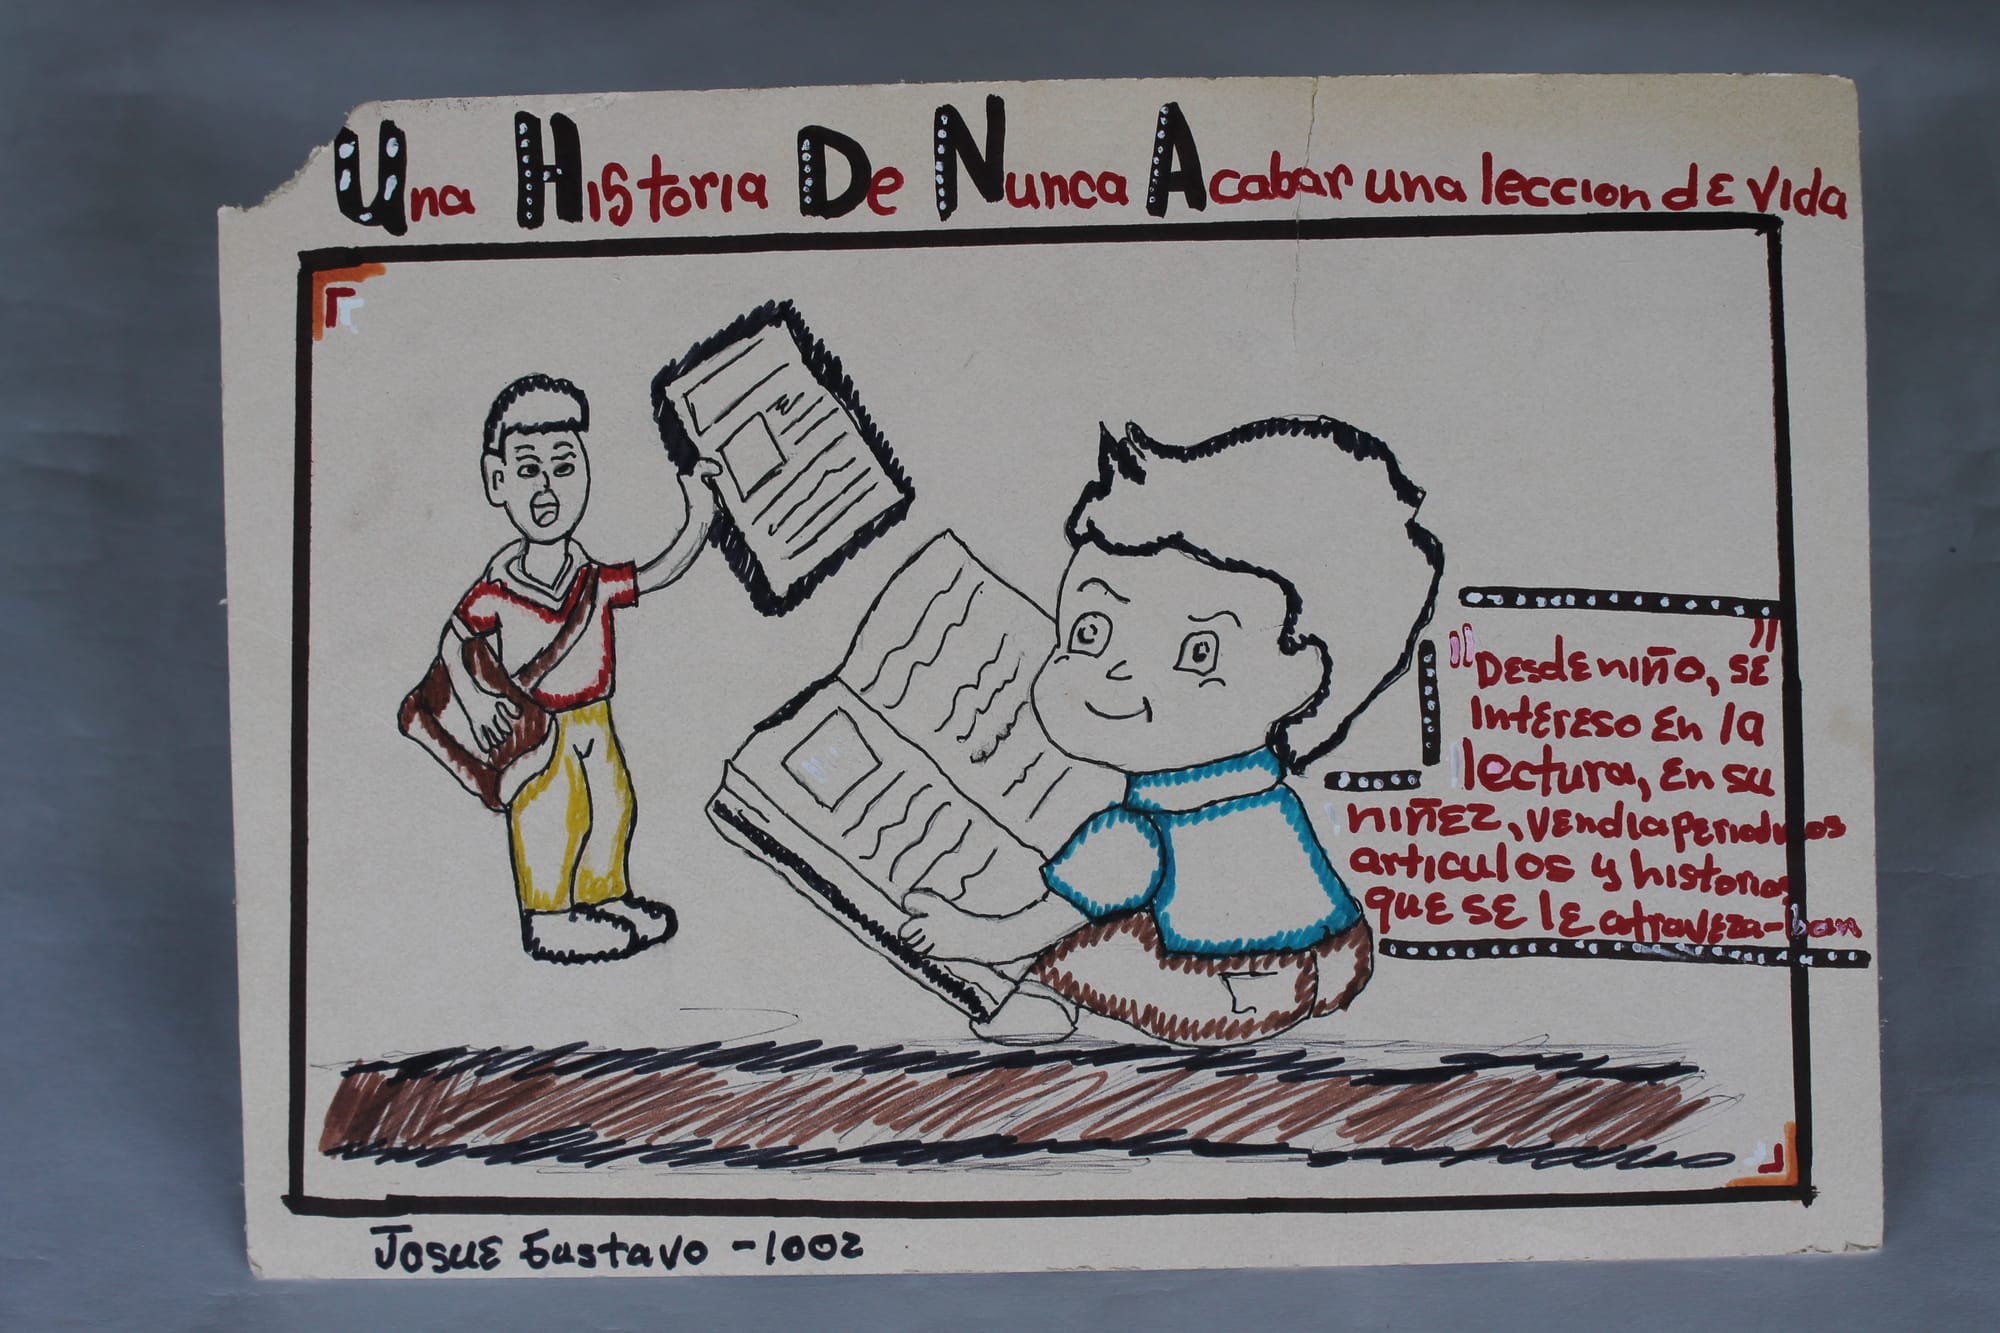 Una Historia De Nunca Acabar una leccion de vida
"Desde niño, se"
intereso en la
lectura, en su
niñez, vendia periodicos
articulos y historias
que se le atraveza-ban
Josue Gustavo -1002